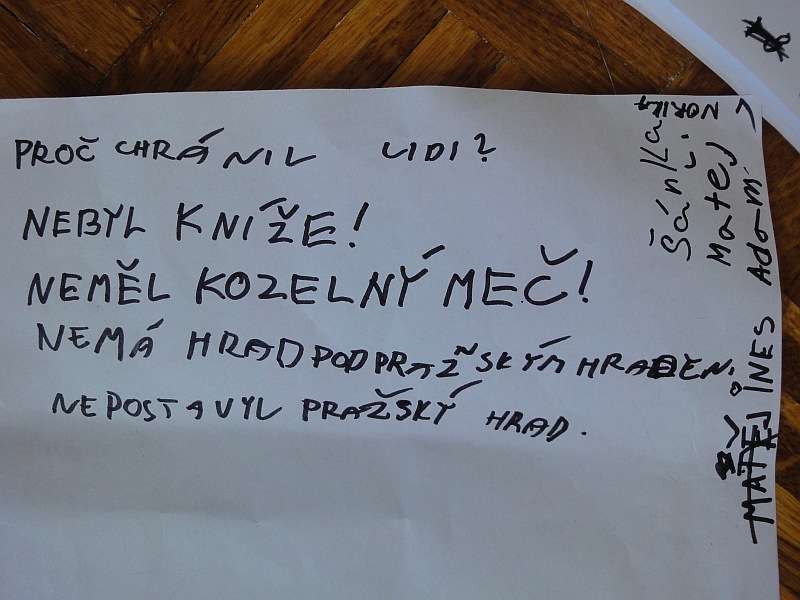 PROČ CHRÁNIL LIDI?
NEBYL KNÍŽE!
NEMĚL KOZELNÝ MEČ!
NEMÁ HRAD POD PRAŽSKÝM HRADEM.
NEPOSTAVYL PRAŽSKÝ HRAD.
NORIKA
Šánka
Matej
Adam
INES
MATĚJ